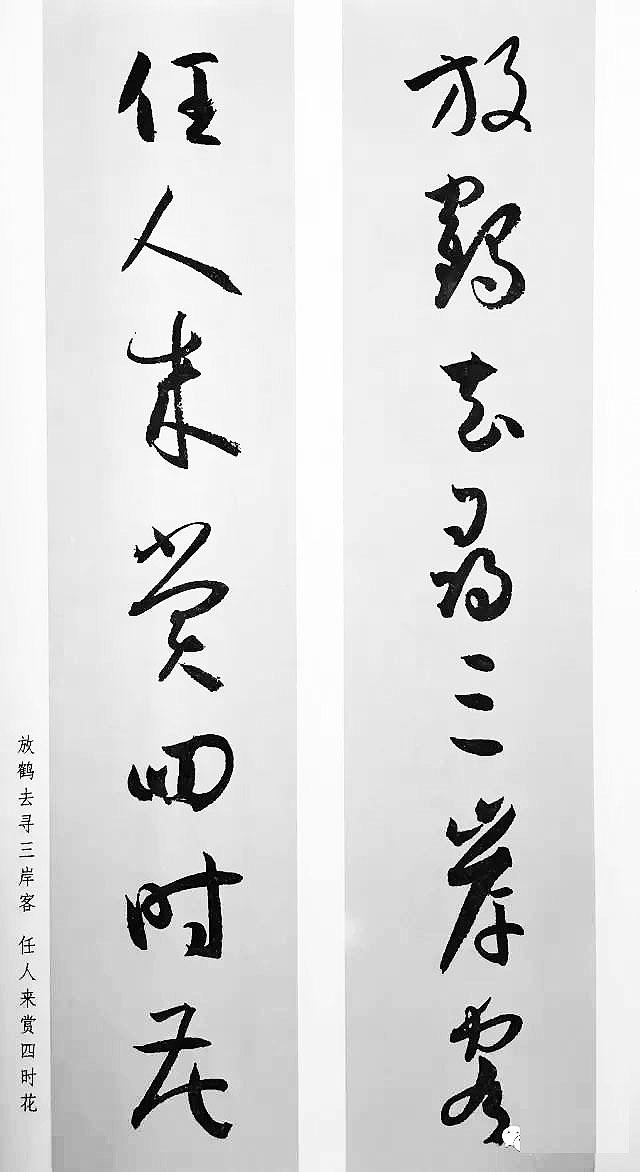 放鹤去寻三岸客
任人来赏四时花
放鹤去寻三岸客 任人来赏四时花